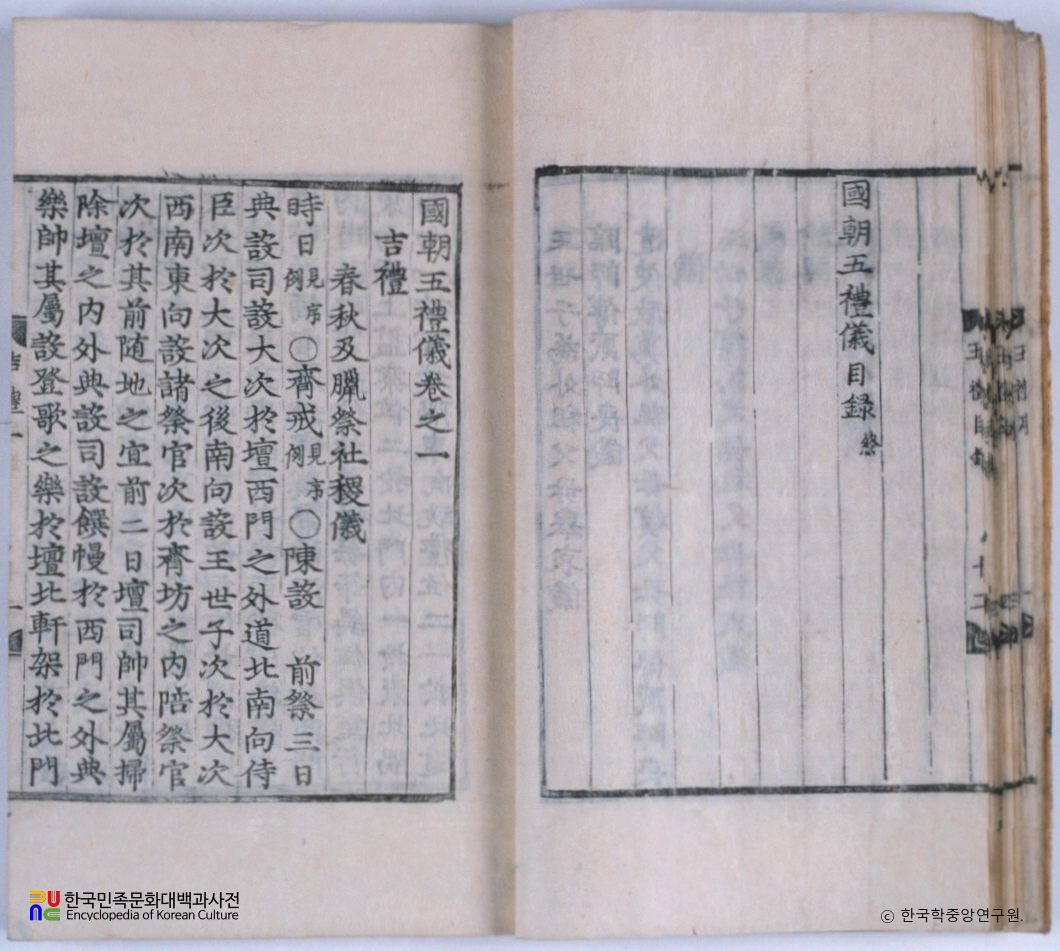 國朝五禮儀目錄 終
國朝五禮儀卷之一
吉禮
春秋及臘祭社稷儀
時日見序例○齊戒見序例○陳設 前祭三日
典設司設大次於壇西門之外道北南向侍
臣次於大次之後南向設王世子次於大次
西南東向設諸祭官次於齊坊之内陪祭官
次於其前随地之宜前二日壇司帥其屬掃
除壇之内外典設司設饌幔於西門之外典
樂帥其屬設登歌之樂於壇北軒架於北門
吉禮 一
한국민족문화대백과사전
Encyclopedia of Korean Culture
© 한국학중앙연구원.